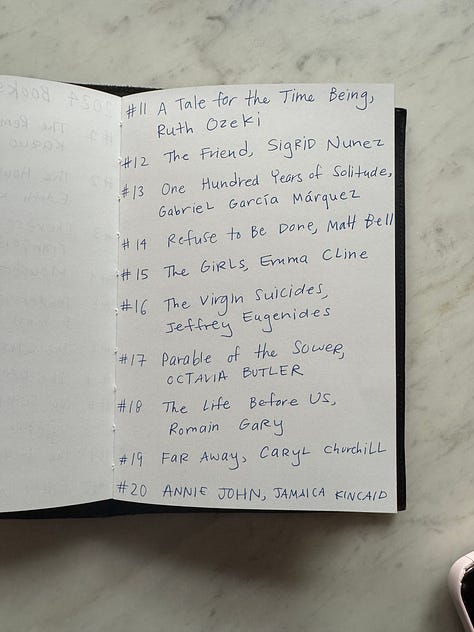 #11 A Tale for the Time Being,
Ruth Ozeki
#12 The Friend, SIGRID NUNEZ
#13 One Hundred Years of Solitude,
Gabriel García Márquez
#14 Refuse to Be Done, Matt Bell
#15 The GIRLS, Emma Cline
#16 The Virgin Suicides,
Jeffrey Eugenides
#17 Parable of the Sower,
OCTAVIA BUTLER
#18 The Life Before Us,
Romain Gary
#19 FAR AWAY, CARYL Churchill
#20 ANNIE JOHN, JAMAICA KINCAID